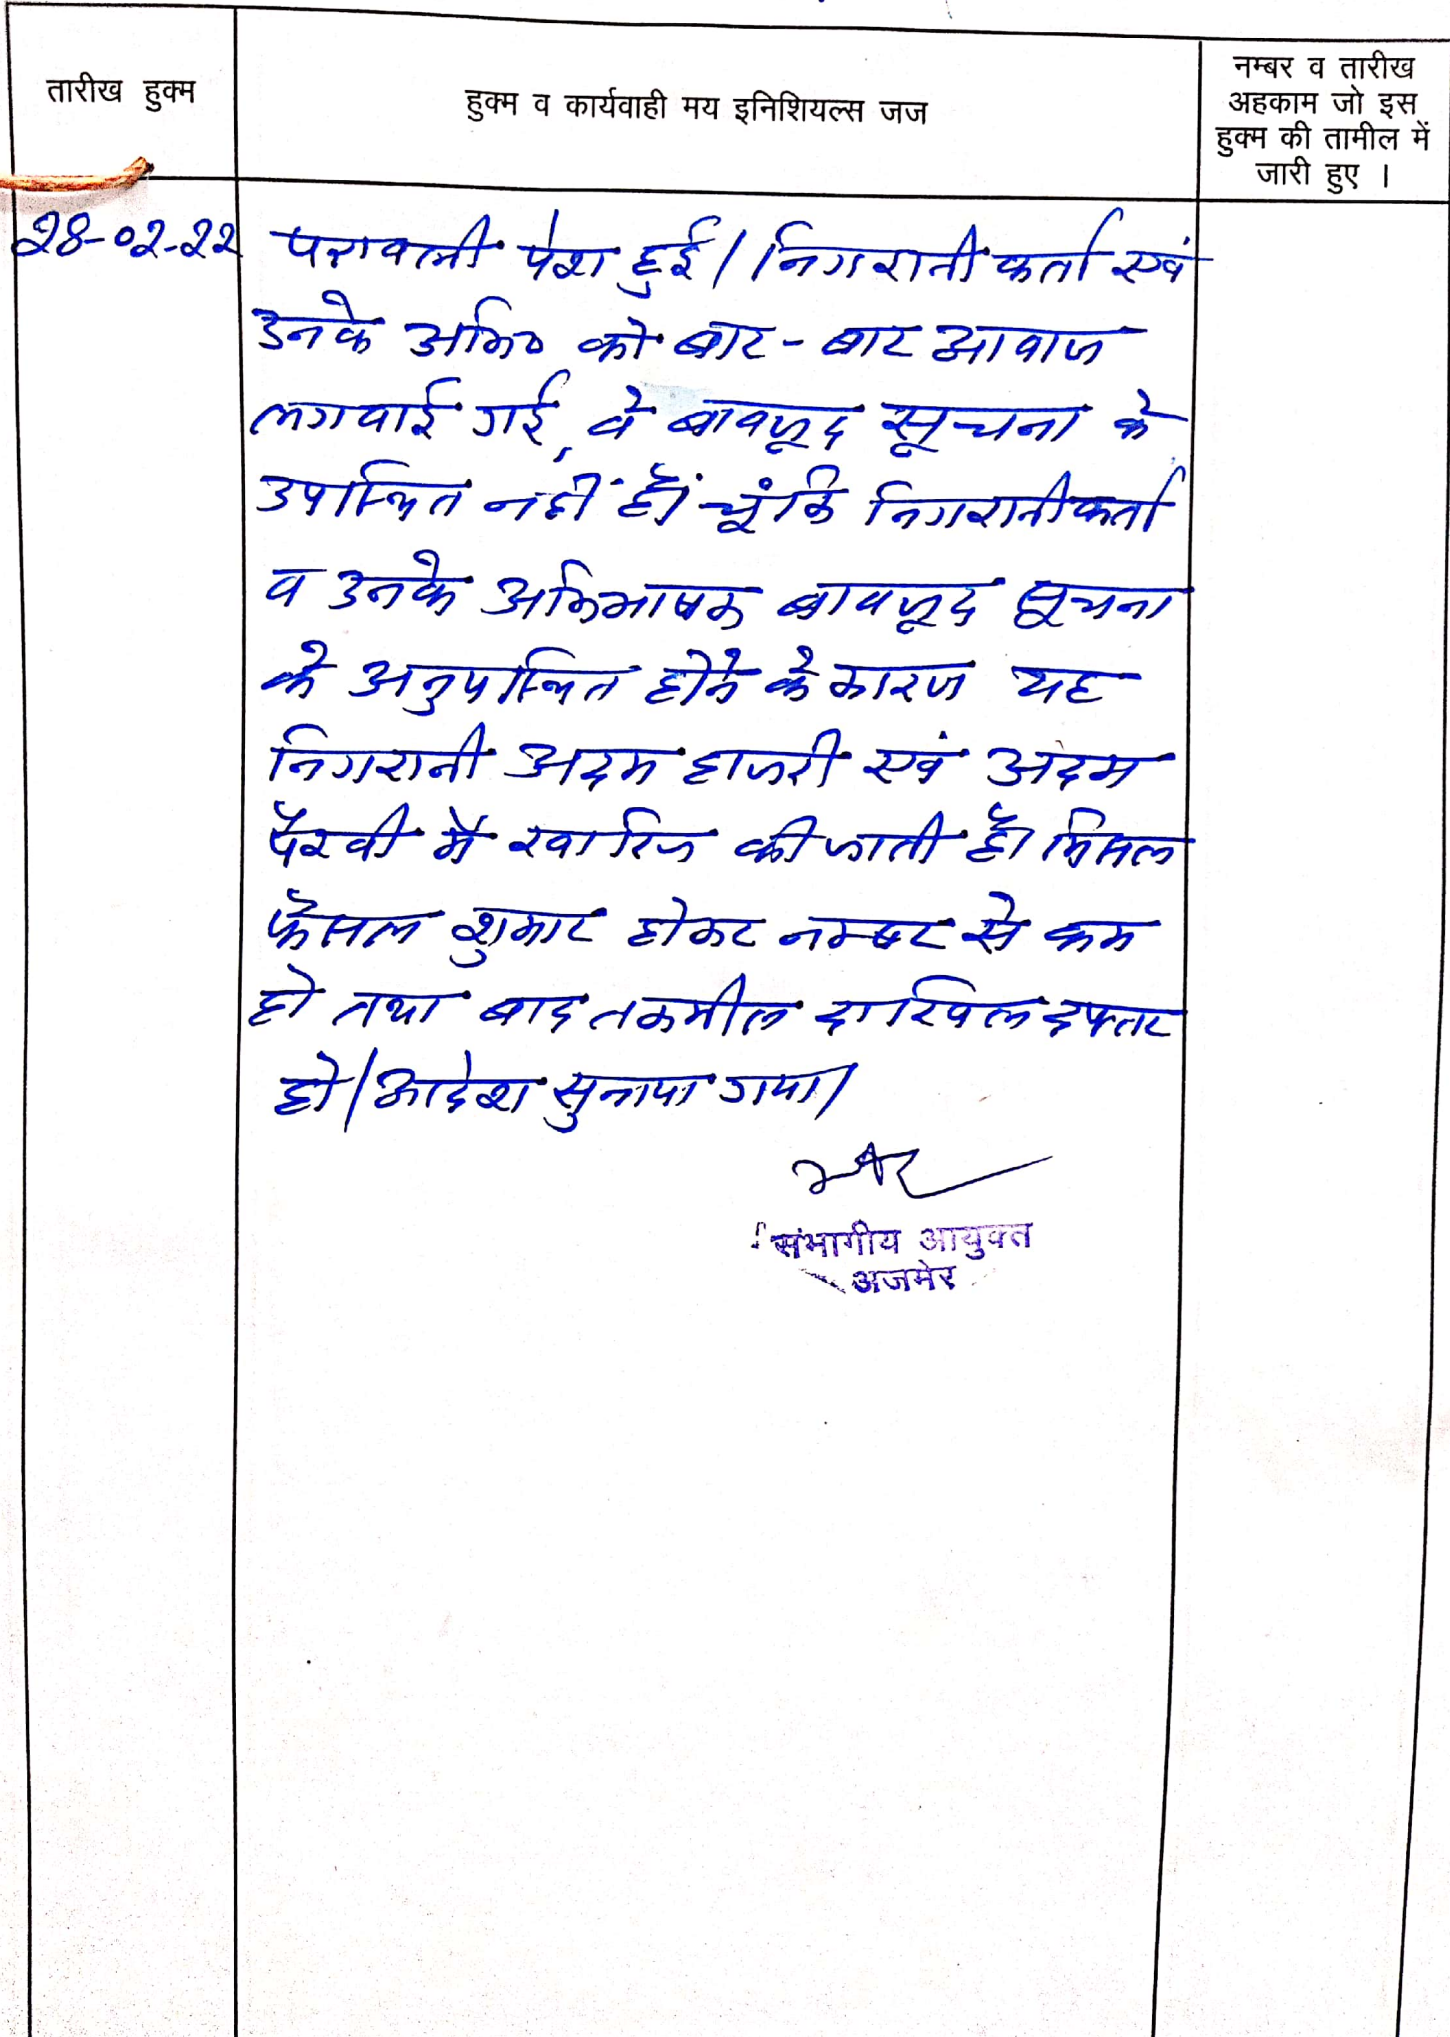 तारीख हुक्म
हुक्म व कार्यवाही मय इनिशियल्स जज
नम्बर व तारीख
अहकाम जो इस
हुक्म की तामील में
जारी हुए ।
28-02-22
पत्रावली पेश हुई। निगरानी कर्ता एवं
उनके अभि० को बार-बार आवाज
लगवाई गई, वे बावजूद सूचना के
उपस्थित नहीं है। चूंकि निगरानीकर्ता
व उनके अभिभाषक बावजूद सूचना
के अनुपस्थित होने के कारण यह
निगरानी अदम हाजरी एवं अदम
पैरवी में खारिज की जाती है। मिसल
फैसल शुमार होकर नम्बर से कम
हो तथा बाद तकमील दाखिल दफ्तर
हो। आदेश सुनाया गया।
संभागीय आयुक्त
अजमेर